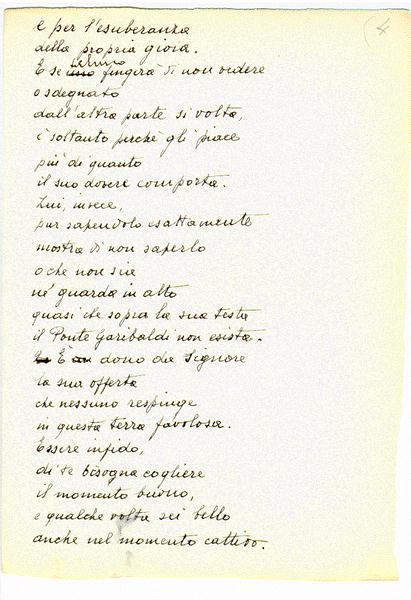 4
e per l'esuberanza
della propria gioia.
taluno
E se uno fingerà di non vedere
o sdegnato
dall'altra parte si volta,
è soltanto perchè gli piace
più di quanto
il suo dovere comporta.
Lui, invece,
pur sapendolo esattamente
mostra di non saperlo
o che non sia
nè guarda in alto
quasi che sopra la sua testa
il Ponte Garibaldi non esista.
È dono da Signore
la sua offerta
che nessuno respinge
in questa terra favolosa.
Essere infido,
di te bisogna cogliere
il momento buono,
e qualche volta sei bello
anche nel momento cattivo.